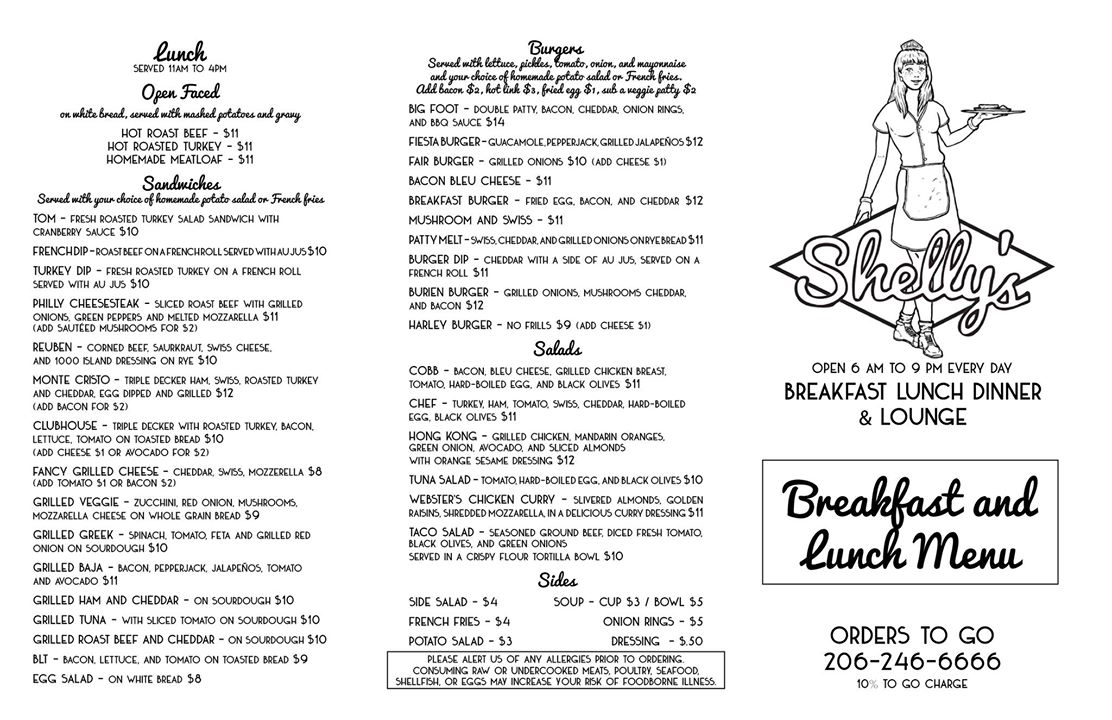 Lunch
SERVED 11AM TO 4PM
Open Faced
on white bread, served with mashed potatoes and gravy
HOT ROAST BEEF - $11
HOT ROASTED TURKEY - $11
HOMEMADE MEATLOAF - $11
Sandwiches
Served with your choice of homemade potato salad or French fries
TOM - FRESH ROASTED TURKEY SALAD SANDWICH WITH
CRANBERRY SAUCE $10
FRENCH DIP - ROAST BEEF ON A FRENCH ROLL SERVED WITH AU JUS $10
TURKEY DIP - FRESH ROASTED TURKEY ON A FRENCH ROLL
SERVED WITH AU JUS $10
PHILLY CHEESESTEAK - SLICED ROAST BEEF WITH GRILLED
ONIONS, GREEN PEPPERS AND MELTED MOZZARELLA $11
(ADD SAUTÉED MUSHROOMS FOR $2)
REUBEN - CORNED BEEF, SAURKRAUT, SWISS CHEESE,
AND 1000 ISLAND DRESSING ON RYE $10
MONTE CRISTO - TRIPLE DECKER HAM, SWISS, ROASTED TURKEY
AND CHEDDAR, EGG DIPPED AND GRILLED $12
(ADD BACON FOR $2)
CLUBHOUSE - TRIPLE DECKER WITH ROASTED TURKEY, BACON,
LETTUCE, TOMATO ON TOASTED BREAD $10
(ADD CHEESE $1 OR AVOCADO FOR $2)
FANCY GRILLED CHEESE - CHEDDAR, SWISS, MOZZERELLA $8
(ADD TOMATO $1 OR BACON $2)
GRILLED VEGGIE - ZUCCHINI, RED ONION, MUSHROOMS,
MOZZARELLA CHEESE ON WHOLE GRAIN BREAD $9
GRILLED GREEK - SPINACH, TOMATO, FETA AND GRILLED RED
ONION ON SOURDOUGH $10
GRILLED BAJA - BACON, PEPPERJACK, JALAPEÑOS, TOMATO
AND AVOCADO $11
GRILLED HAM AND CHEDDAR - ON SOURDOUGH $10
GRILLED TUNA - WITH SLICED TOMATO ON SOURDOUGH $10
GRILLED ROAST BEEF AND CHEDDAR - ON SOURDOUGH $10
BLT - BACON, LETTUCE, AND TOMATO ON TOASTED BREAD $9
EGG SALAD - ON WHITE BREAD $8
Burgers
Served with lettuce, pickles, tomato, onion, and mayonnaise
and your choice of homemade potato salad or French fries.
Add bacon $2, hot link $3, fried egg $1, sub a veggie patty $2
BIG FOOT - DOUBLE PATTY, BACON, CHEDDAR, ONION RINGS,
AND BBQ SAUCE $14
FIESTA BURGER - GUACAMOLE, PEPPERJACK, GRILLED JALAPEÑOS $12
FAIR BURGER - GRILLED ONIONS $10 (ADD CHEESE $1)
BACON BLEU CHEESE - $11
BREAKFAST BURGER - FRIED EGG, BACON, AND CHEDDAR $12
MUSHROOM AND SWISS - $11
PATTY MELT - SWISS, CHEDDAR, AND GRILLED ONIONS ON RYE BREAD $11
BURGER DIP - CHEDDAR WITH A SIDE OF AU JUS, SERVED ON A
FRENCH ROLL $11
BURIEN BURGER - GRILLED ONIONS, MUSHROOMS CHEDDAR,
AND BACON $12
HARLEY BURGER - NO FRILLS $9 (ADD CHEESE $1)
Salads
COBB - BACON, BLEU CHEESE, GRILLED CHICKEN BREAST,
TOMATO, HARD-BOILED EGG, AND BLACK OLIVES $11
CHEF - TURKEY, HAM, TOMATO, SWISS, CHEDDAR, HARD-BOILED
EGG, BLACK OLIVES $11
HONG KONG - GRILLED CHICKEN, MANDARIN ORANGES,
GREEN ONION, AVOCADO, AND SLICED ALMONDS
WITH ORANGE SESAME DRESSING $12
TUNA SALAD - TOMATO, HARD-BOILED EGG, AND BLACK OLIVES $10
WEBSTER'S CHICKEN CURRY - SLIVERED ALMONDS, GOLDEN
RAISINS, SHREDDED MOZZARELLA, IN A DELICIOUS CURRY DRESSING $11
TACO SALAD - SEASONED GROUND BEEF, DICED FRESH TOMATO,
BLACK OLIVES, AND GREEN ONIONS
SERVED IN A CRISPY FLOUR TORTILLA BOWL $10
Sides
SIDE SALAD - $4 SOUP - CUP $3 / BOWL $5
FRENCH FRIES - $4 ONION RINGS - $5
POTATO SALAD - $3 DRESSING - $.50
PLEASE ALERT US OF ANY ALLERGIES PRIOR TO ORDERING.
CONSUMING RAW OR UNDERCOOKED MEATS, POULTRY, SEAFOOD,
SHELLFISH, OR EGGS MAY INCREASE YOUR RISK OF FOODBORNE ILLNESS.
Shelly's
OPEN 6 AM TO 9 PM EVERY DAY
BREAKFAST LUNCH DINNER
& LOUNGE
Breakfast and
Lunch Menu
ORDERS TO GO
206-246-6666
10% TO GO CHARGE